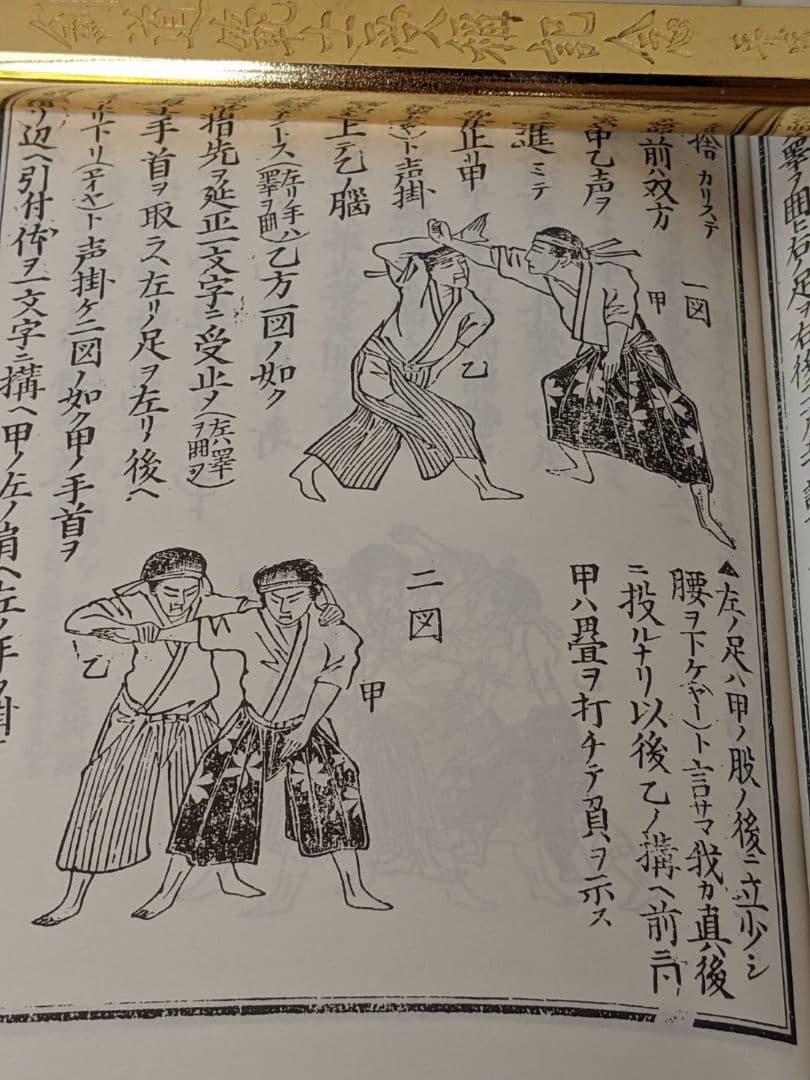 劍道範士受稱記念
捨 カリステ
前ハ双方
甲乙声ヲ
進ミテ
止リ甲
(ヤ)ト声掛
上テ乙ノ脳
(左リノ手ハ臂ヲ曲)乙方一図ノ如ク
指先ヲ延正一文字ニ受止メ(左ハ臂ヲ曲ヲ)
手首ヲ取ラス左リノ足ヲ左リノ後ヘ
リ下リ(エイヤ)ト声掛ケ二図ノ如ク甲ノ手首ヲ
リ辺ヘ引付体ヲ一文字ニ搆ヘ甲ノ左ノ肩ヘ左ノ手ヲ掛
一図
甲
乙
▲左ノ足ハ甲ノ股ノ後ニ立少シ
腰ヲ下ケ(ヤー)ト言サマ我カ真後
ニ投ルナリ以後乙ノ搆ヘ前ニ同
甲ハ畳ヲ打チテ負ヲ示ス
二図
甲
乙